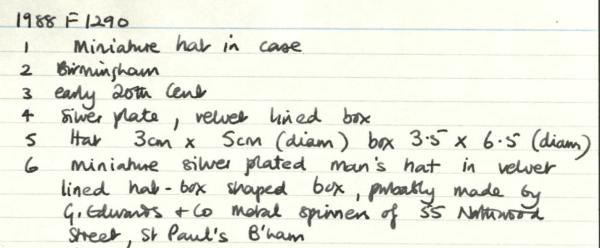 1988 F1290
1 Miniature hat in case
2 Birmingham
3 early 20th Cent
4 silver plate, velvet lined box
5 Hat 3cm x 5cm (diam) box 3.5 x 6.5 (diam)
6 miniature silver plated man's hat in velvet
lined hat-box shaped box, probably made by
G. Edwards + Co metal spinners of 55 Northwood
Street, St Paul's B'ham